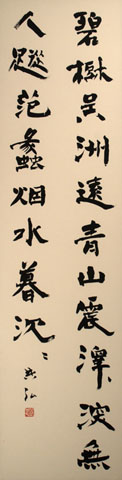 碧樹呉洲遠青山震澤深無
人蹤范蠡烟水暮沉〻